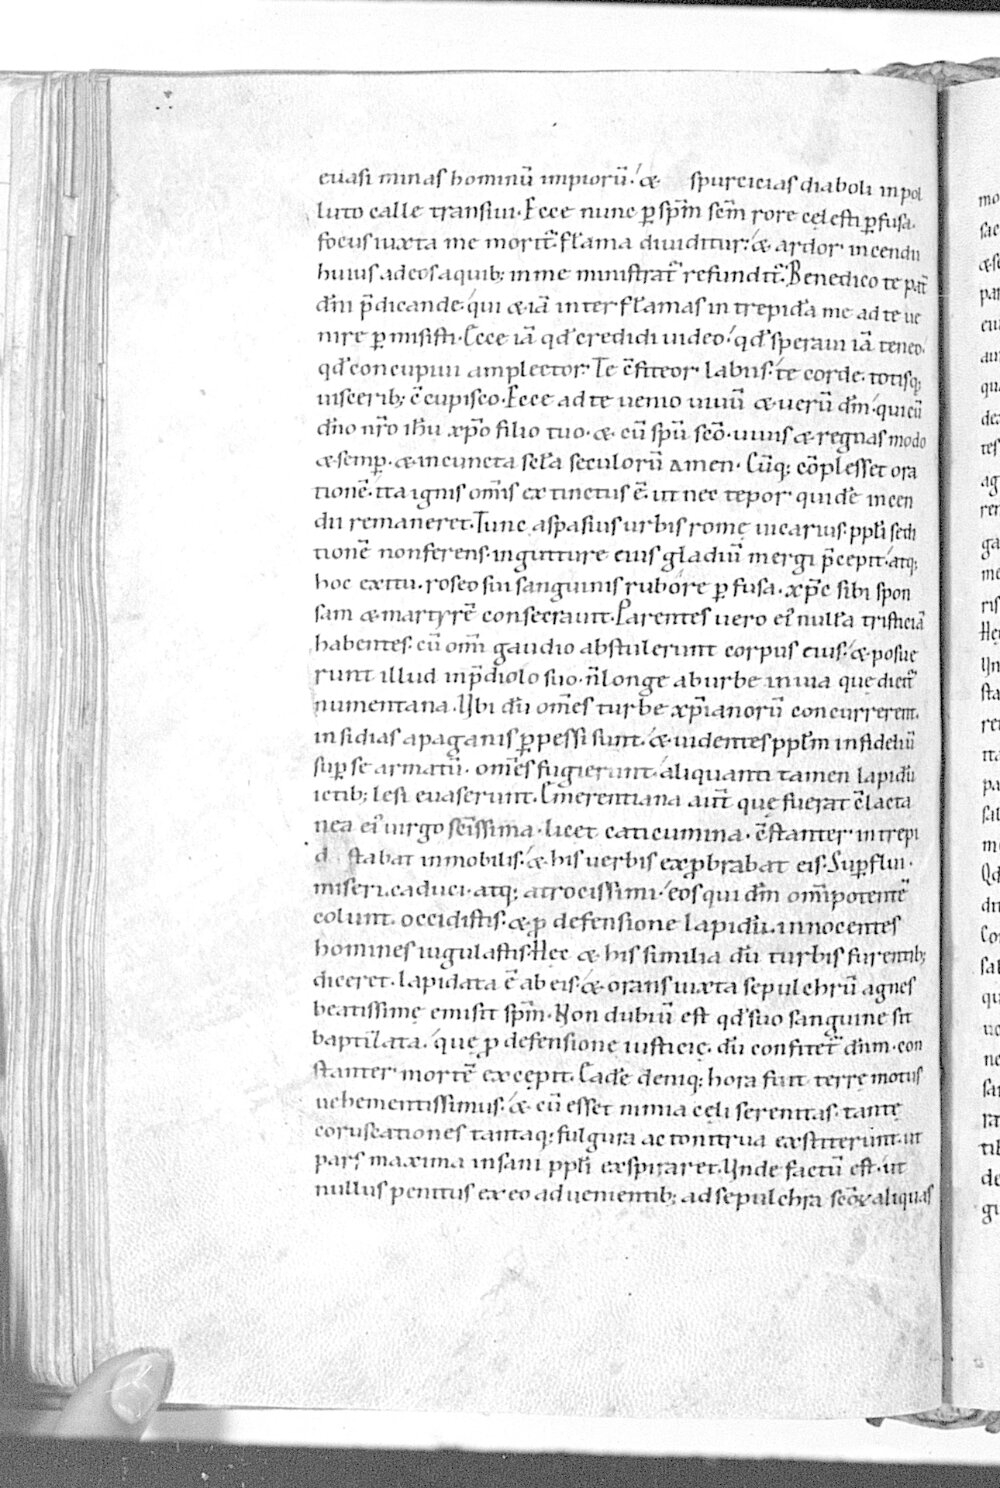 euasi minas hominū impiorū. & spurcicias diaboli inpol
luto calle transiui. Ecce nunc p̱ sp̄m sc̄m rore cęlesti p̱fusa.
focus iuxta me morit̄. flāma diuiditur. & ardor incendii
huius ad eos a quib; in me ministrat̄ refundit̄. Benedico te pat̄
dn̄i p̄dicande. qui & iā inter flāmas intrepidā me ad te ue
nire p̱misisti. Ecce iā qd̄ credidi uideo. qd̄ speraui iā teneo.
qd̄ concupiui amplector. Te c̄fiteor labiis. te corde. totisq;
uiscerib; c̄cupisco. Ecce ad te uenio uiuū & uerū dm̄. qui cū
dn̄o nr̄o ih̄u xp̄o filio tuo. & cū spū sc̄o. uiuis & regnas modo
& semp̱. & in cuncta scl̄a seculorū amen. Cūq; cōplesset ora
tionē. ita ignis om̄is extinctus ē. ut nec tepor quidē incen
dii remaneret. Tunc aspasius urbis romę uicarius. ppl̄i sedi
tionē non ferens. in gutture eius gladiū mergi p̄cepit. atq;
hoc exitu. roseo sui sanguinis rubore p̱fusa. xp̄c sibi spon
sam & martyrē consecrauit. Parentes uero ei' nullā tristiciā
habentes. cū om̄i gaudio abstulerunt corpus eius. & posue
runt illud in p̄diolo suo. n̄ longe ab urbe in uia quę dicit̄
numentana. Ubi dū om̄es turbe xp̄ianorū concurrerent.
insidias a paganis p̱pessi sunt. & uidentes ppl̄m infideliū
sup̱ se armatū. om̄es fugierunt. aliquanti tamen lapidū
ictib; lesi euaserunt. Emerentiana aut̄ que fuerat c̄lacta
nea ei' uirgo sc̄issima. licet caticumina. c̄stanter intrepi
d stabat inmobilis. & his uerbis exp̱brabat eis. Sup̱flui.
miseri. caduci. atq; atrocissimi. eos qui dm̄ om̄ipotentē
colunt. occidistis. & p̱ defensione lapidū. innocentes
homines iugulastis. Hęc & his similia dū turbis furentib;
diceret. lapidata ē ab eis. & orans iuxta sepulchrū agnes
beatissimę emisit sp̄m. Non dubiū est qd̄ suo sanguine sit
baptizata. quę p̱ defensione iusticię. dū confitet̄ dn̄m. con
stanter mortē excepit. Eadē deniq; hora fuit terrę motus
uehementissimus. & cū esset nimia cęli serenitas. tantę
coruscationes tantaq; fulgura ac tonitrua exstiterunt. ut
pars maxima insani ppl̄i exspiraret. Unde factū est. ut
nullus penitus ex eo aduenientib; ad sepulchra sc̄oꝝ aliquas